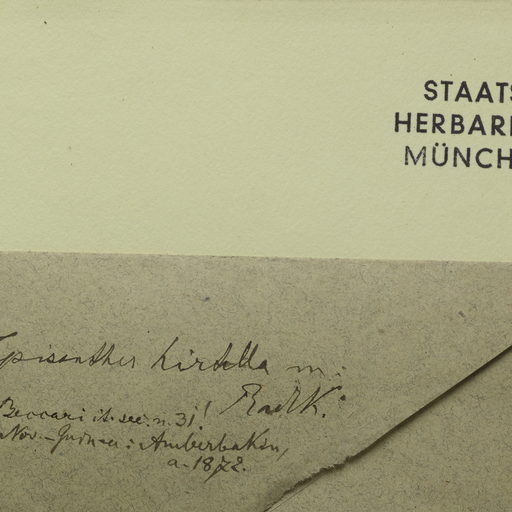 STAATS
HERBARI
MÜNCH
hirtella m:
Radlk.
Beccari it. sec. n. 31!
Nov.-Guinea: Amberbakin,
a. 1872.